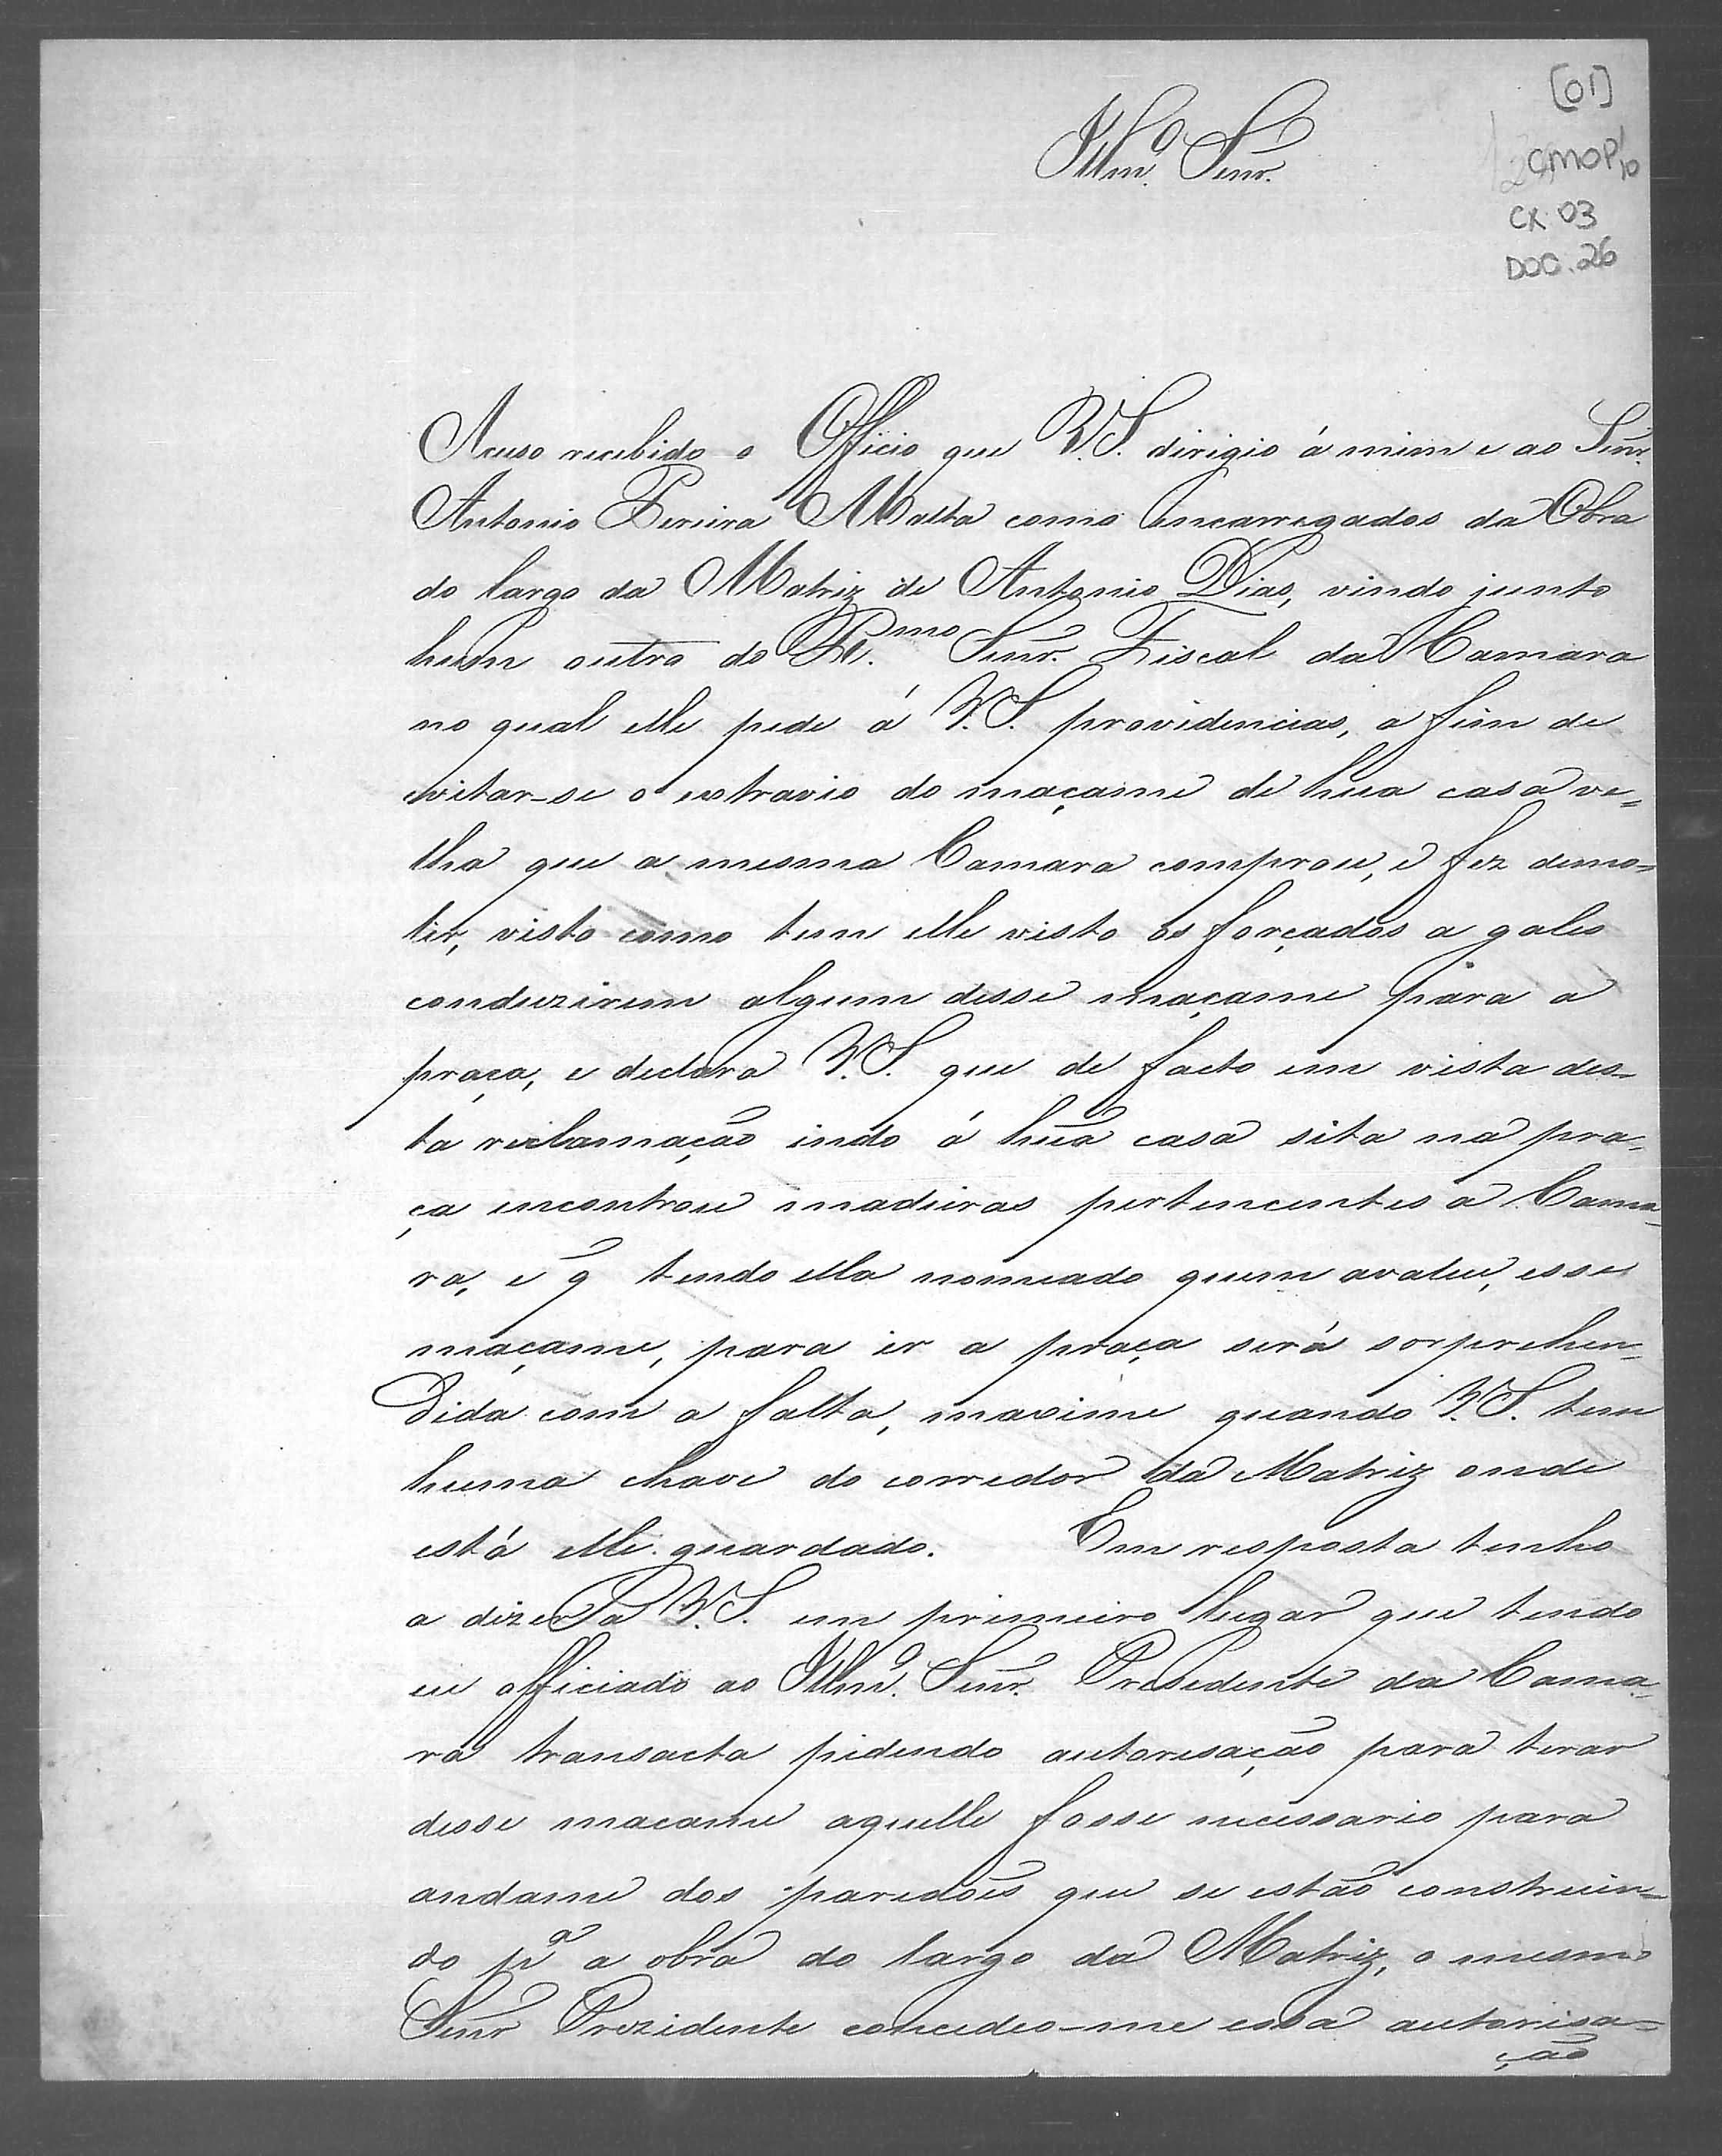 [01]
CMOP 1/10
CX. 03
DOC. 26
Illmº. Senr.
Acuso recebido o Officio que V.S. dirigio á mim e ao Senr.
Antonio Pereira Malta como encarregados da Obra
do largo da Matriz de Antonio Dias, vindo junto
hum outro do Rmo. Senr. Fiscal da Camara
no qual elle pede á V.S. providencias, a fim de
evitar-se o extravio do maçame de hua casa ve=
lha que a mesma Camara comprou, e fez demo=
lir, visto como tem elle visto os forçados a gales
conduzirem algum desse maçame para a
praça, e declara V.S. que de facto em vista des=
ta reclamação indo á hũa casa sita na pra=
ça encontrou madeiras pertencentes a Cama=
ra, e q̃ tendo ella nomeado quem avalue, esse
maçame, para ir a praça será sorprehen=
dida com a falta, maxime quando V.S. tem
huma chave do corredor da Matriz onde
está elle guardado. Em resposta tenho
a dizer a V.S. em primeiro lugar que tendo
eu officiado ao Illmº. Senr. Presedente da Cama=
ra transacta pidindo autorisação para tirar
desse macame aquelle fosse necessario para
andame dos paredões que se estão construin=
do pª a obra do largo da Matriz, o mesmo
Senr Prezidente concedeo-me essa autorisa=
ção